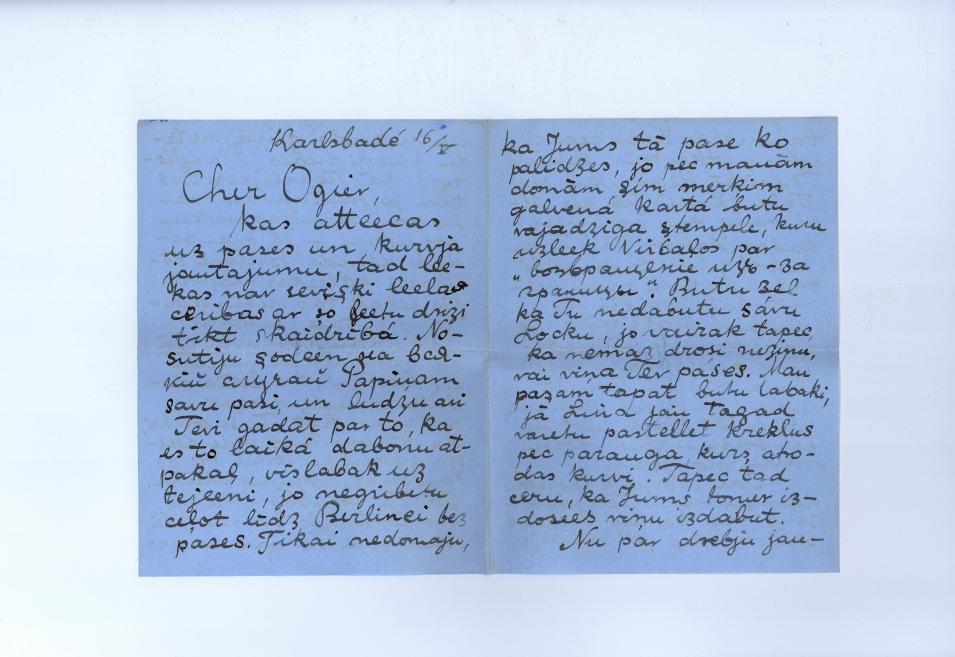 Karlsbadé 16/V
Cher Ogier,
kas atteecas
uz pases un kurvja
jautajumu, tad lee-
kas nav sevişki leelas
ceribas ar şo leetu drizi
tikt skaidribá. No-
sutiju şodeen на вся-
кий случай Papiņam
savu pasi, un ludzu ari
Tevi gadat par to, ka
es to laiká dabonu at-
pakaļ, vislabak uz
tejeeni, jo negribetu
ceļot lidz Berlinei bez
pases. Tikai nedomaju,
ka Jums tā pase ko
palidzes, jo pec manām
domām şim merķim
galvená kartá butu
vajadziga ştempele, kuru
uzleek Virbaļos par
"возвращение изъ-за
границы". Butu zel
ka Tu nedabutu savu
Locku, jo vairak tapec
ka nemaz drosi nezinu,
vai viņa Tev pases. Man
paşam tapat butu labaki,
já Lina jau tagad
varetu pastellet kreklus
pec parauga, kurş atro-
das kurvi. Tapec tad
ceru, ka Jums tomer iz-
dosees viņu izdabut.
Nu par drebju jau-